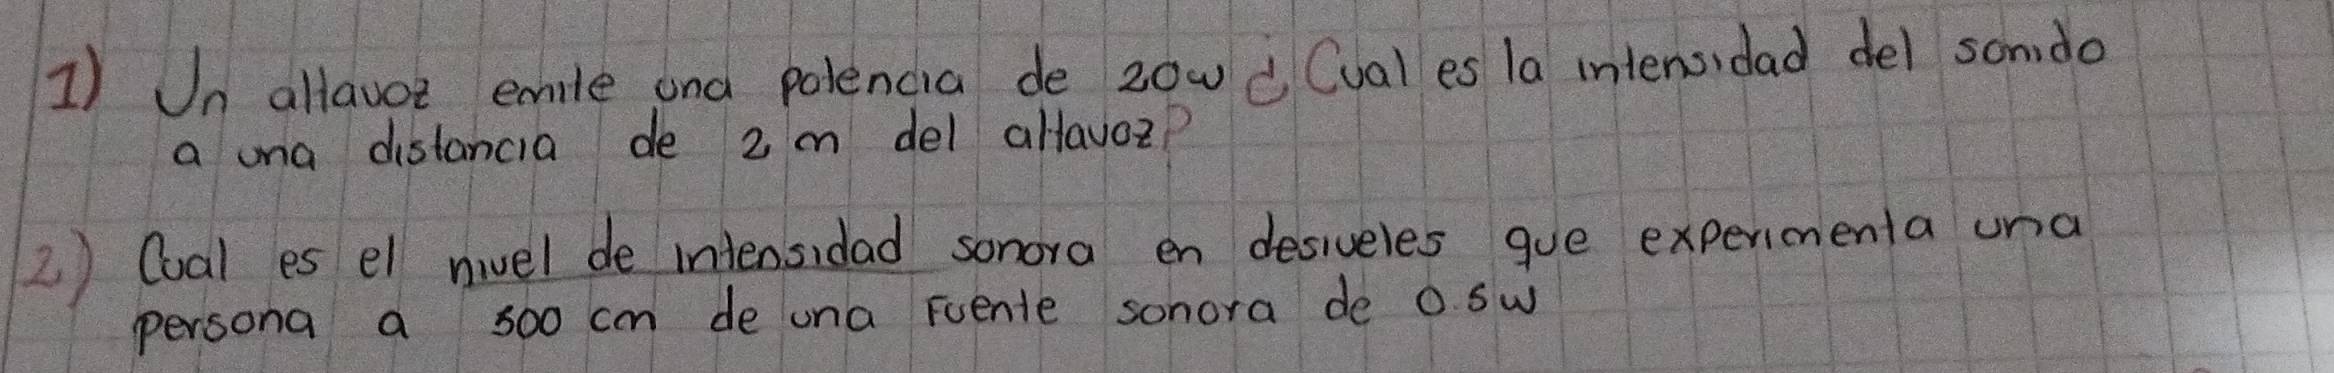 1) Un altavoz emite una potencia de 20w ¿Cual es la intensidad del sonido
a una distancia de 2 m del altavoz?
2) Cual es el nivel de intensidad sonora en desiveles que experimenta una
persona a 500 cm de una Fuente sonora de 0.5w